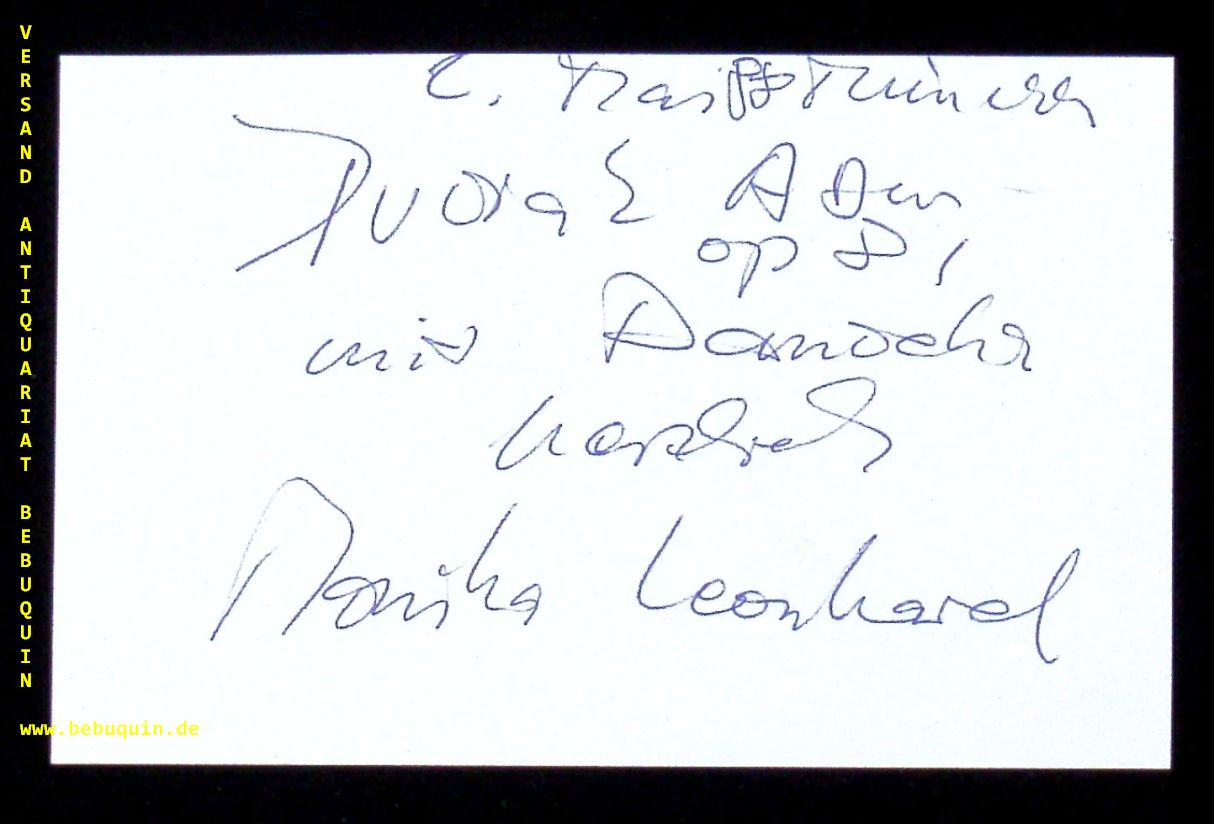 VERSAND ANTIQUARIAT BEBUQUIN
www.bebuquin.de
C.
Dvorak A Dur
op 81
mit
herzlich
Monika Leonhard